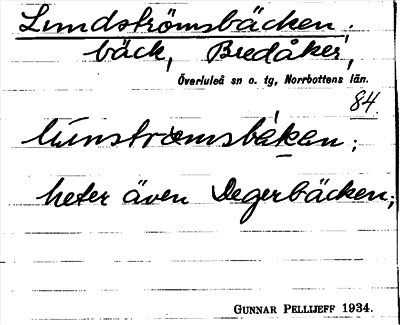 Lundströmsbäcken.
bäck, Bredåker,
Överluleå sn o. tg, Norrbottens län.
84
lúnstrœmsbäken;
heter även Degerbäcken;
GUNNAR PELLIJEFF 1934.